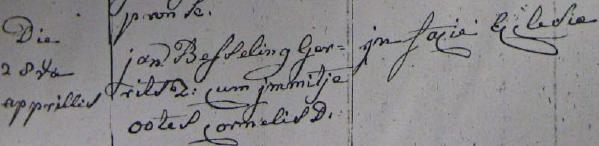 pronse.
Die
28va
apprillis
jan Besseling Ger-
rits Z: cum jmmitje
ootes cornelis D.
jn facie Ecclesie